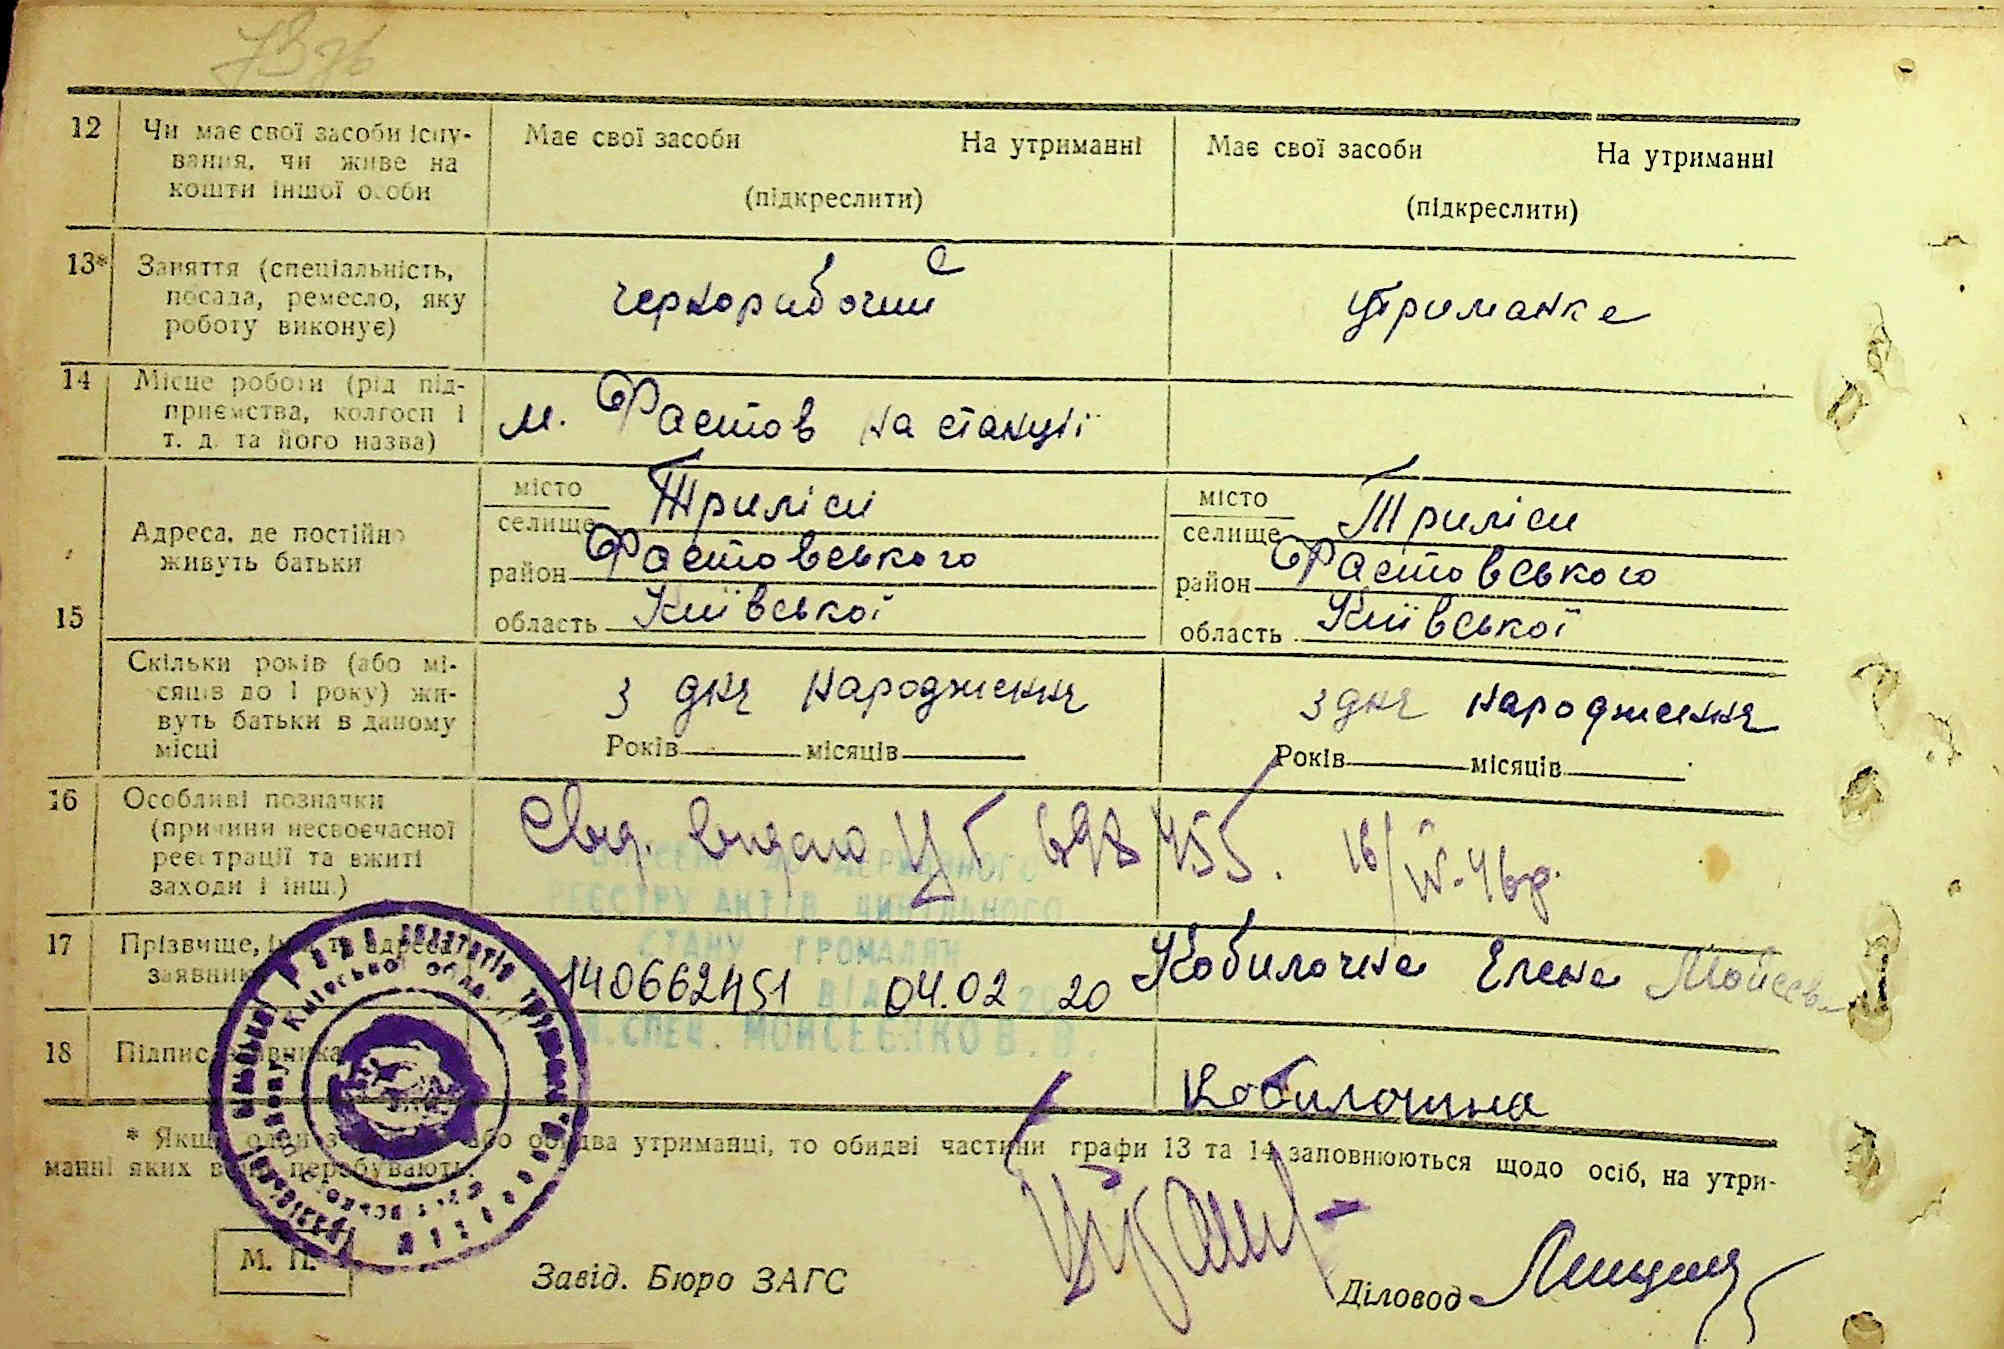 12 Чи має свої засоби існу-
вання, чи живе на
кошти іншої особи
Має свої засоби На утриманні
(підкреслити)
Має свої засоби На утриманні
(підкреслити)
13* Заняття (спеціальність,
посада, ремесло, яку
роботу виконує)
чернорабочий
утриманка
14 Місце роботи (рід під-
приємства, колгосп і
т. д. та його назва)
м. Фастов на станції
15 Адреса, де постійно
живуть батьки
місто
селище Триліси
район Фастовського
область Київської
місто
селище Триліси
район Фастовського
область Київської
Скільки років (або мі-
сяців до 1 року) жи-
вуть батьки в даному
місці
з дня народження
Років місяців
з дня народження
Років місяців
16 Особливі позначки
(причини несвоєчасної
реєстрації та вжиті
заходи і інш.)
Свид. видано
ВНЕСЕНО ДО ДЕРЖАВНОГО
РЕЄСТРУ АКТІВ ЦИВІЛЬНОГО
СТАНУ ГРОМАДЯН
17 Прізвище, ім'я та адреса
заявника
140662451 ВІД 04.02 2020
Кобилочна Елена Мойсеевна
М.СПЕЦ. МОЙСЕЄНКО В. В.
18 Підпис заявника
Кобилочина
* Якщо один з або обидва утриманці, то обидві частини графи 13 та 14 заповнюються щодо осіб, на утри-
манні яких вони перебувають.
М. П.
Завід. Бюро ЗАГС
Діловод